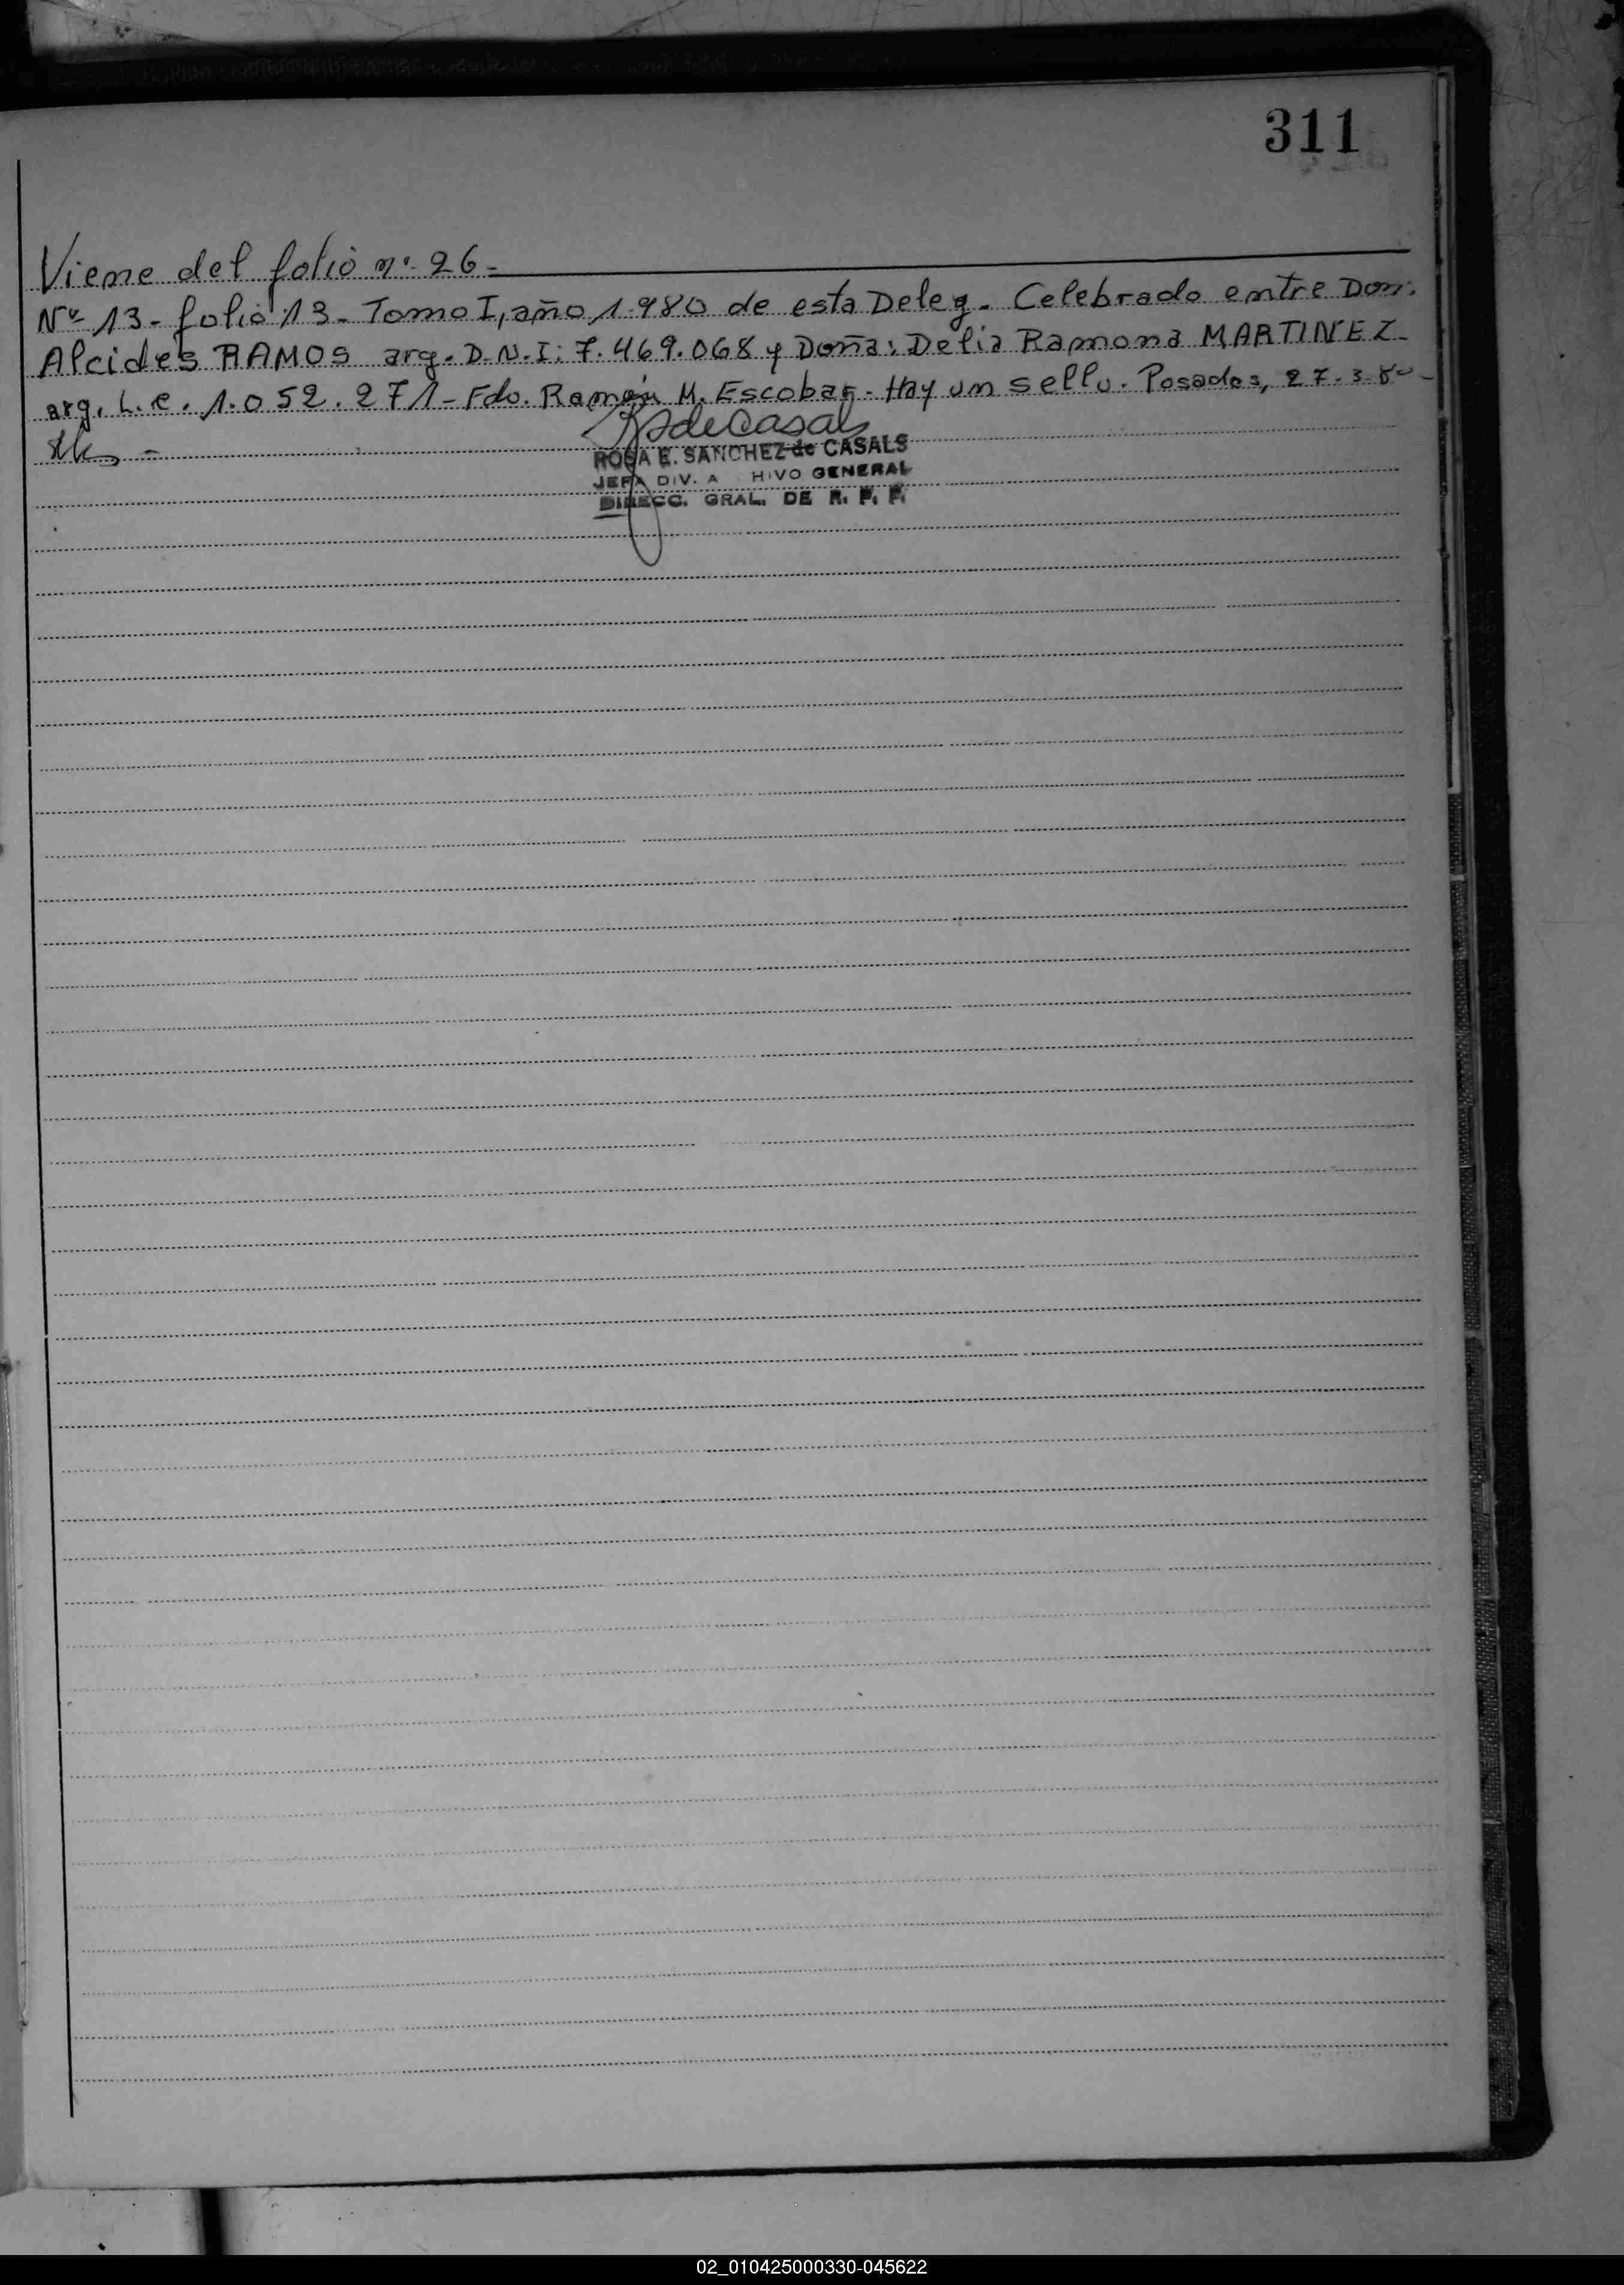 311
Viene del folio nº 26-
Nº 13- folio 13- Tomo I, año 1.980 de esta Deleg- Celebrado entre Don:
Alcides RAMOS arg. D.N.I: 7.469.068 y Doña: Delia Ramona MARTINEZ-
arg. L.C. 1.052.271- Fdo. Ramón M. Escobar- Hay un sello. Posadas, 27-3-80-
RSdeCasals
ROSA E. SANCHEZ de CASALS
JEFA DIV. A HIVO GENERAL
DIRECC. GRAL. DE R. P. P.
02_010425000330-045622